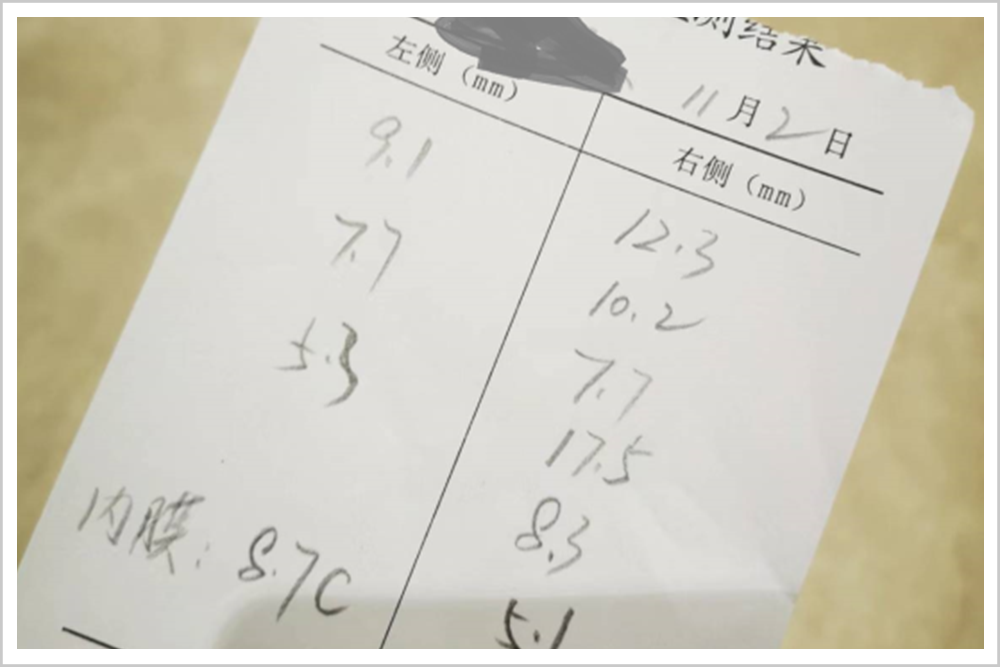 测结果
11月2日
左侧（mm） 右侧（mm）
9.1 12.3
7.7 10.2
5.3 7.7
17.5
8.3
内膜：8.7C 5.1